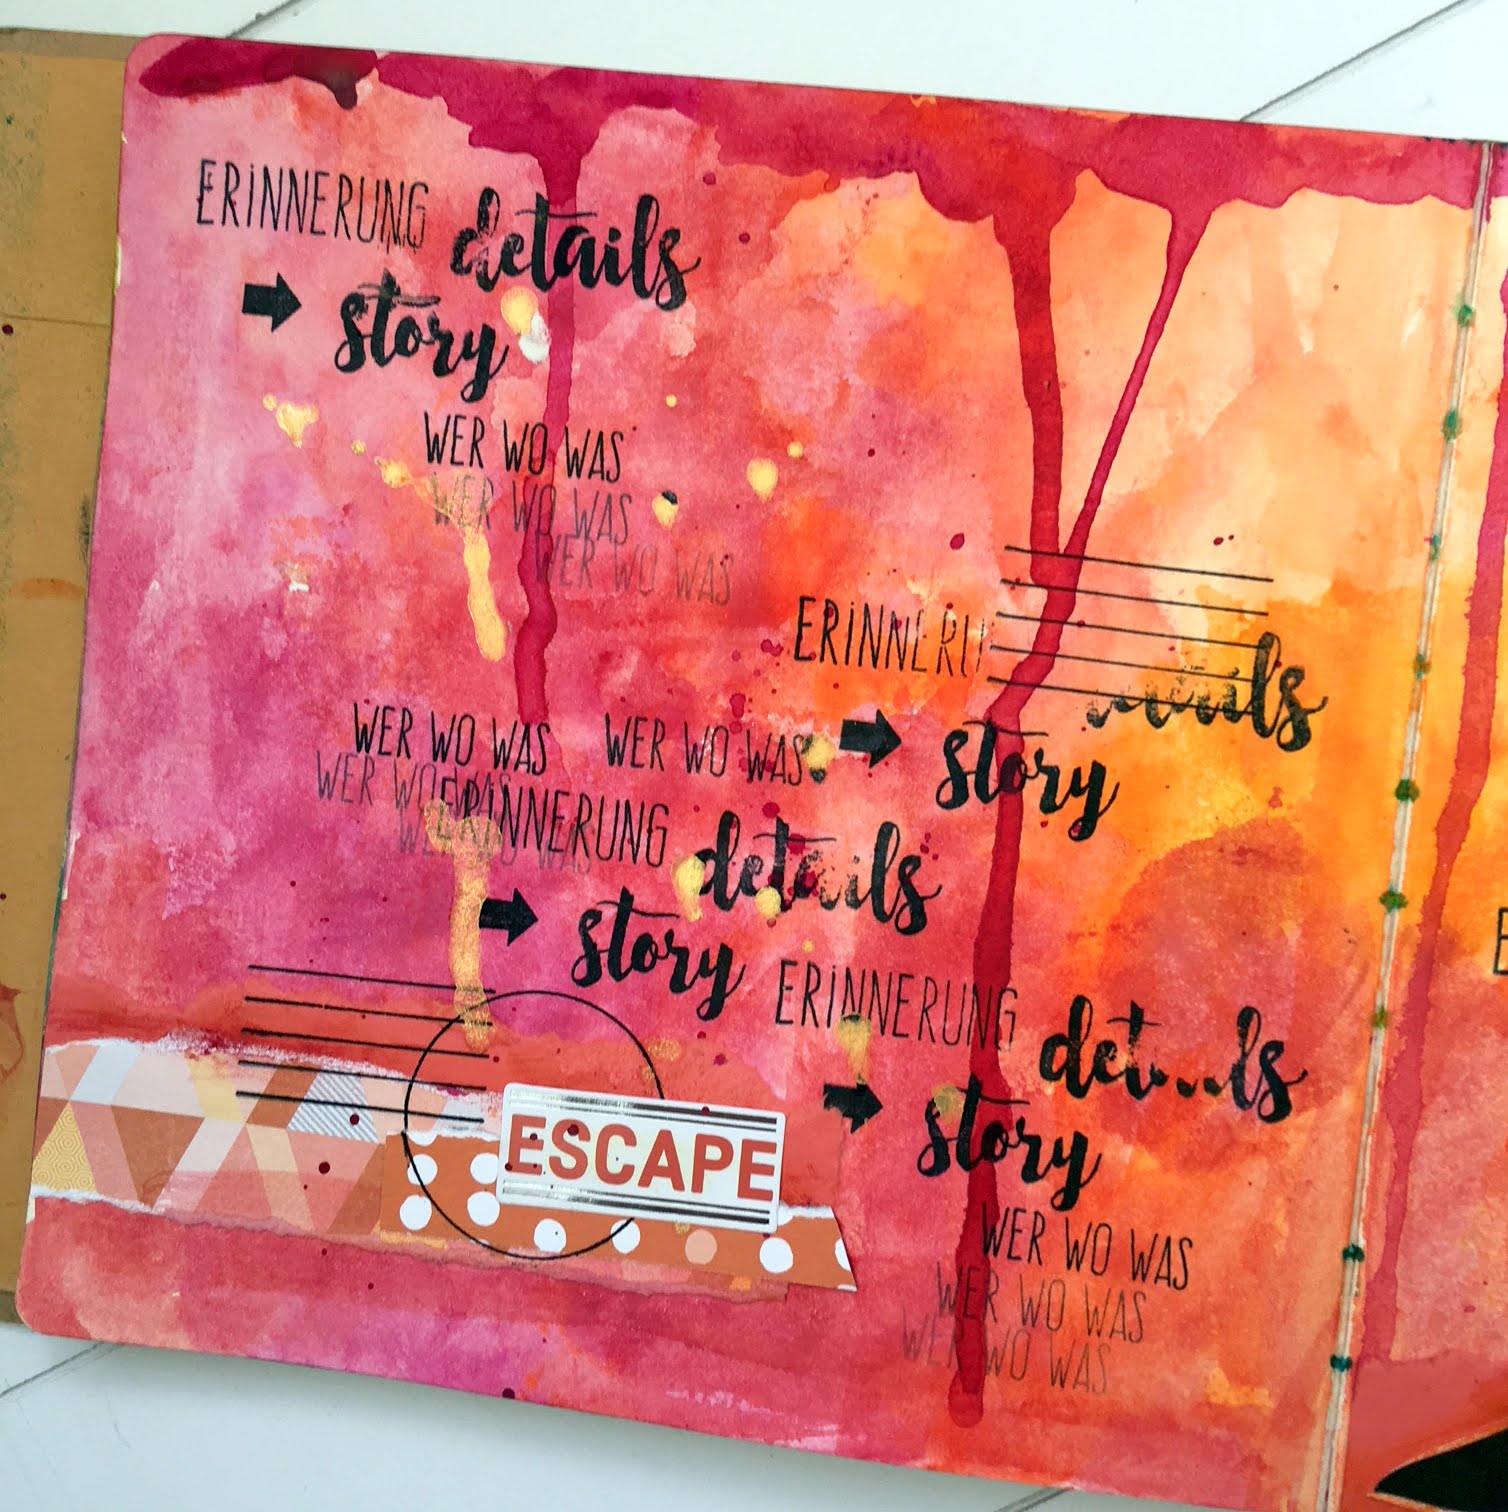 ERINNERUNG details
story
WER WO WAS
WER WO WAS
WER WO WAS
ERINNERU
story
WER WO WAS WER WO WAS
WER WO WAS
ERINNERUNG details
story
ERINNERUNG
story
ESCAPE
WER WO WAS
WER WO WAS
WER WO WAS